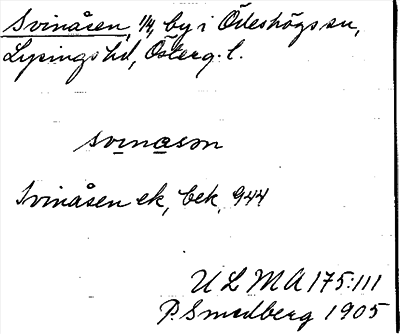 Svinåsen, 1/4, by i Ödeshögs sn,
Lysings hd, Österg. l.
svinasən
Svinåsen ek, bek, 944
ULMA 175:111
P. Smedberg 1905